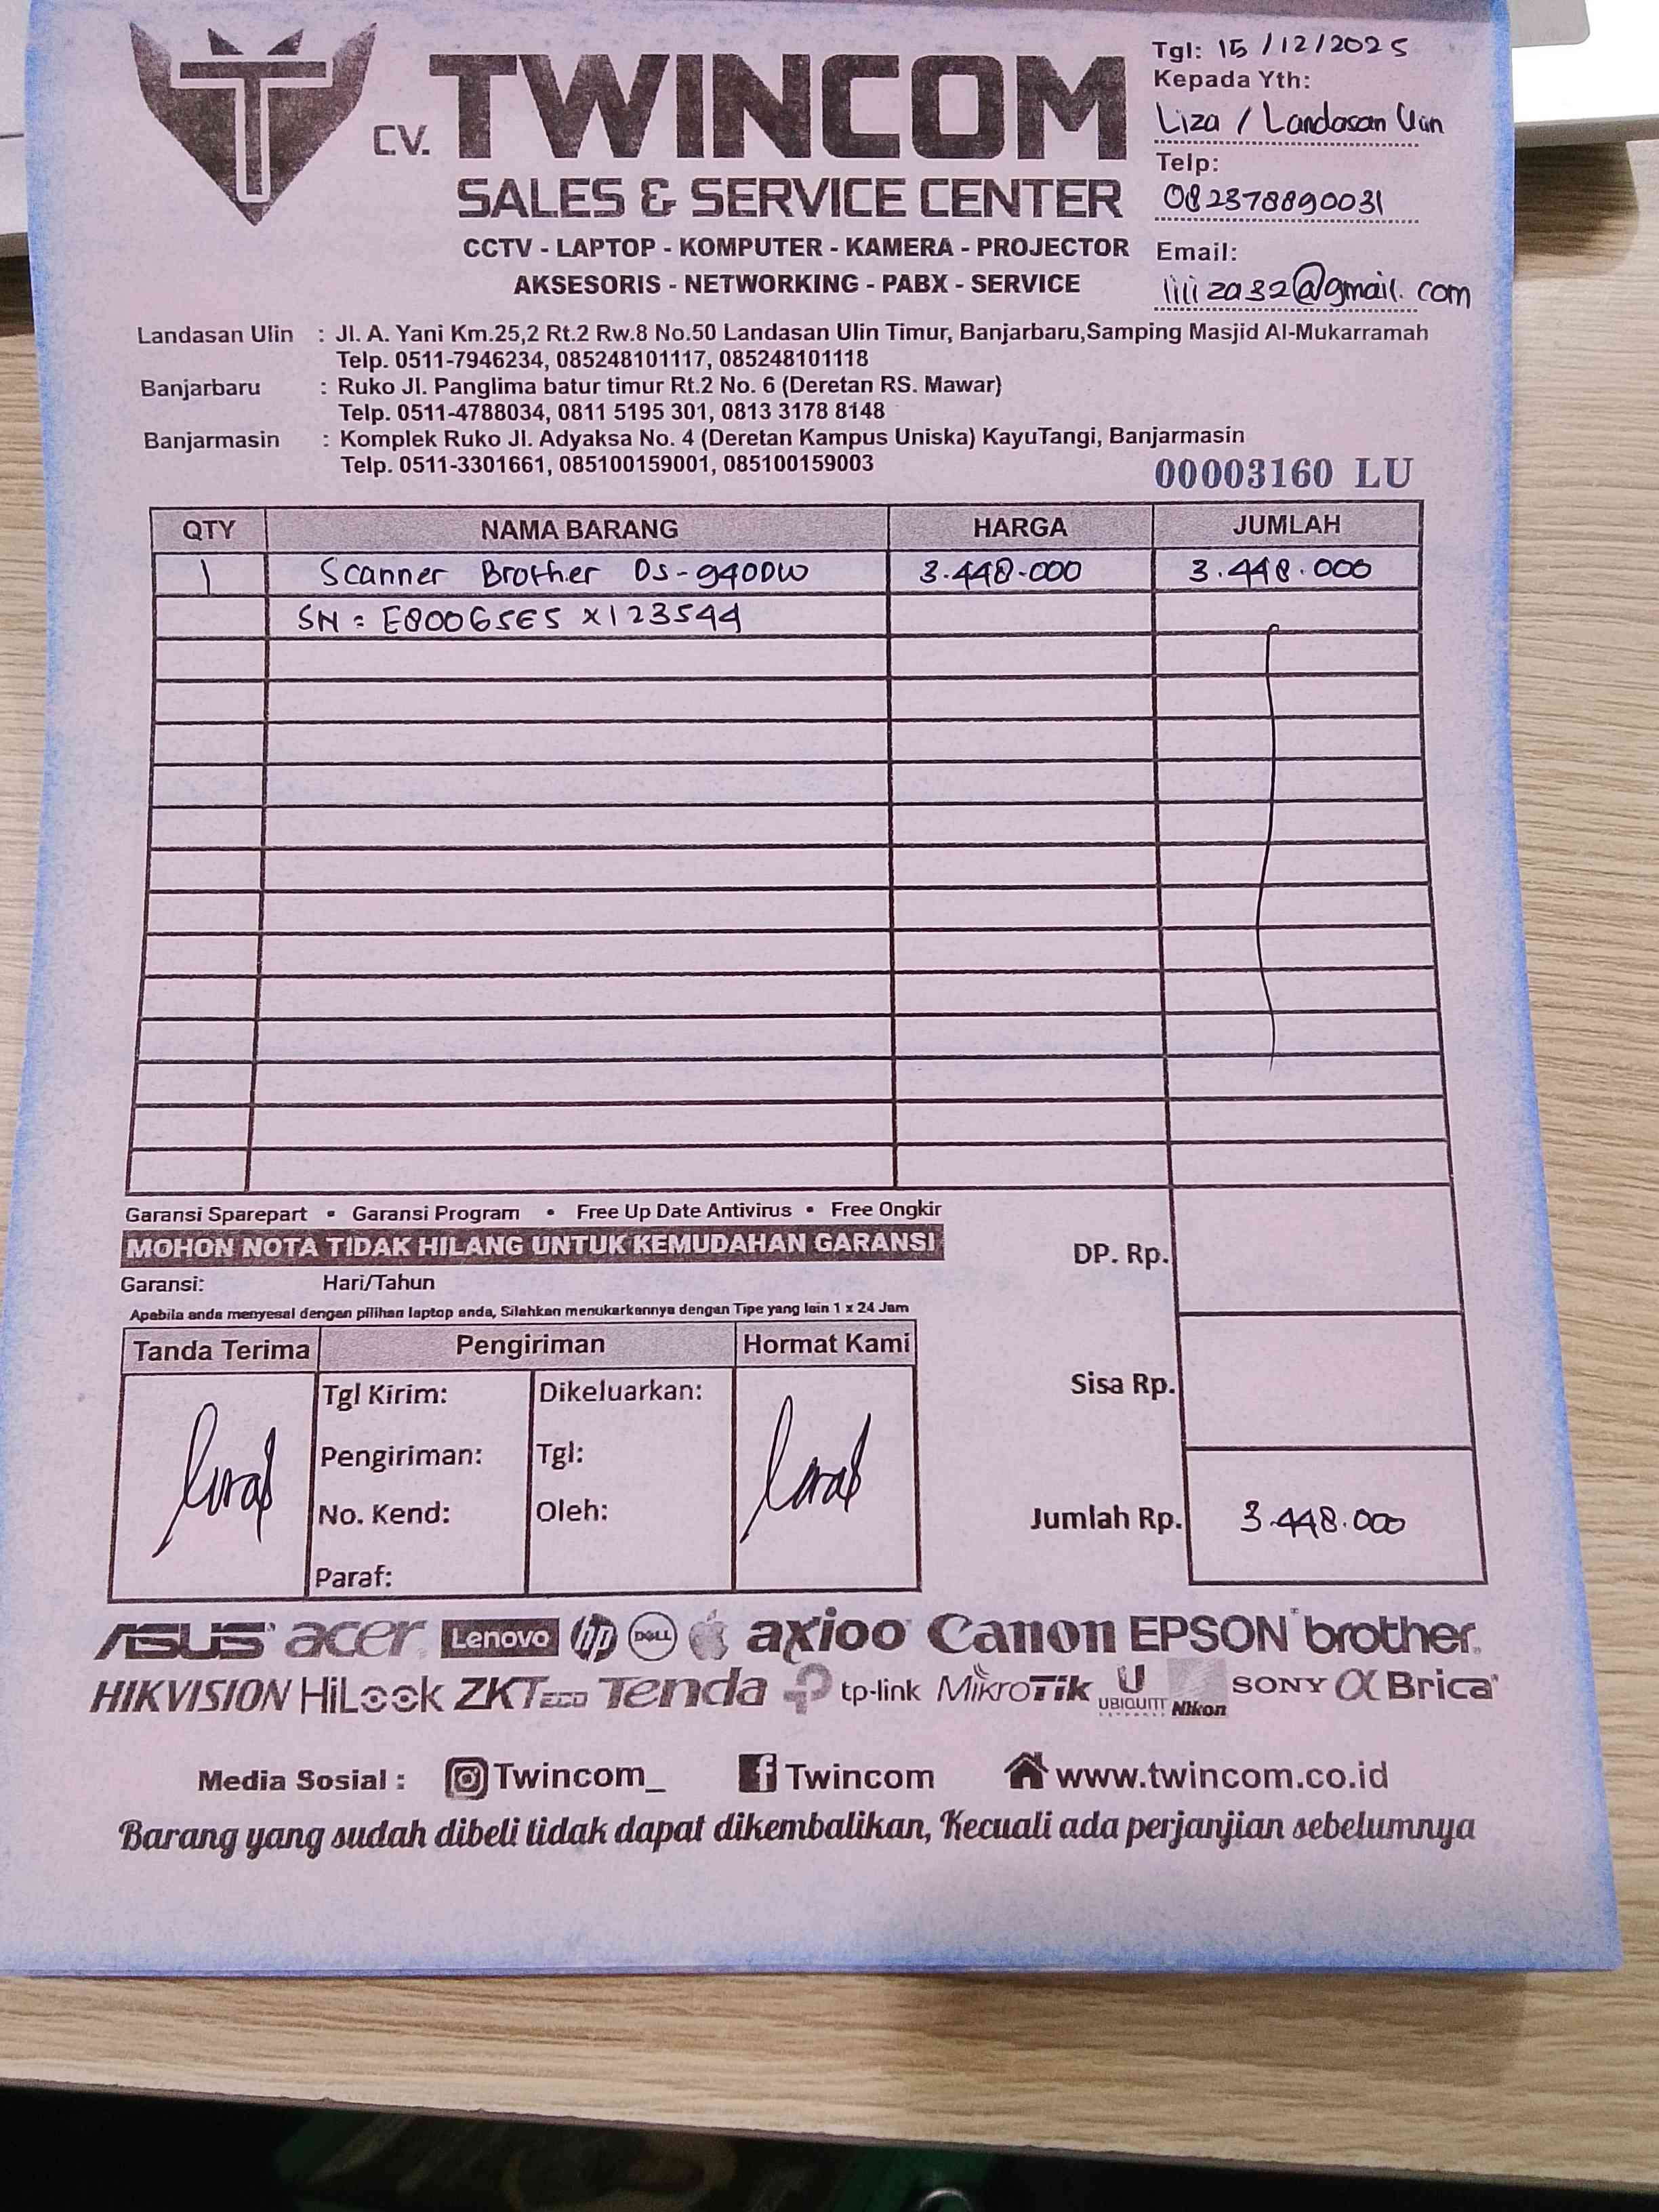 T
CV. TWINCOM
SALES & SERVICE CENTER
CCTV - LAPTOP - KOMPUTER - KAMERA - PROJECTOR
AKSESORIS - NETWORKING - PABX - SERVICE
Tgl: 15/12/2025
Kepada Yth:
Liza / Landasan Ulin
Telp:
082378890031
Email:
liliza32@gmail.com
Landasan Ulin : Jl. A. Yani Km.25,2 Rt.2 Rw.8 No.50 Landasan Ulin Timur, Banjarbaru,Samping Masjid Al-Mukarramah
Telp. 0511-7946234, 085248101117, 085248101118
Banjarbaru : Ruko Jl. Panglima batur timur Rt.2 No. 6 (Deretan RS. Mawar)
Telp. 0511-4788034, 0811 5195 301, 0813 3178 8148
Banjarmasin : Komplek Ruko Jl. Adyaksa No. 4 (Deretan Kampus Uniska) KayuTangi, Banjarmasin
Telp. 0511-3301661, 085100159001, 085100159003
00003160 LU
QTY NAMA BARANG HARGA JUMLAH
1 Scanner Brother DS-940DW 3.448.000 3.448.000
SN = E80065E5 X123544
Garansi Sparepart • Garansi Program • Free Up Date Antivirus • Free Ongkir
MOHON NOTA TIDAK HILANG UNTUK KEMUDAHAN GARANSI
Garansi: Hari/Tahun
Apabila anda menyesal dengan pilihan laptop anda, Silahkan menukarkannya dengan Tipe yang lain 1 x 24 Jam
DP. Rp.
Sisa Rp.
Jumlah Rp. 3.448.000
Tanda Terima Pengiriman Hormat Kami
Tgl Kirim: Dikeluarkan:
Pengiriman: Tgl:
No. Kend: Oleh:
Paraf:
ASUS acer Lenovo hp DELL axioo Canon EPSON brother
HIKVISION HiLook ZKTECO Tenda tp-link MikroTik UBIQUITI Nikon SONY α Brica
Media Sosial : Twincom_ Twincom www.twincom.co.id
Barang yang sudah dibeli tidak dapat dikembalikan, Kecuali ada perjanjian sebelumnya